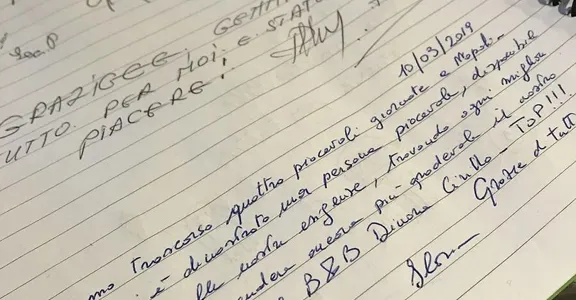 GRAZIE E
TUTTO PER NOI; E STATO
PIACERE!
10/03/2019
trascorso quattro piacevoli giornate a Napoli.
è dimostrato una persona piacevole, disponibile
nostre esigenze, trovando ogni miglior
ancora più gradevole il nostro
B&B Dimora Cirillo - TOP!!!
Grazie di tutto